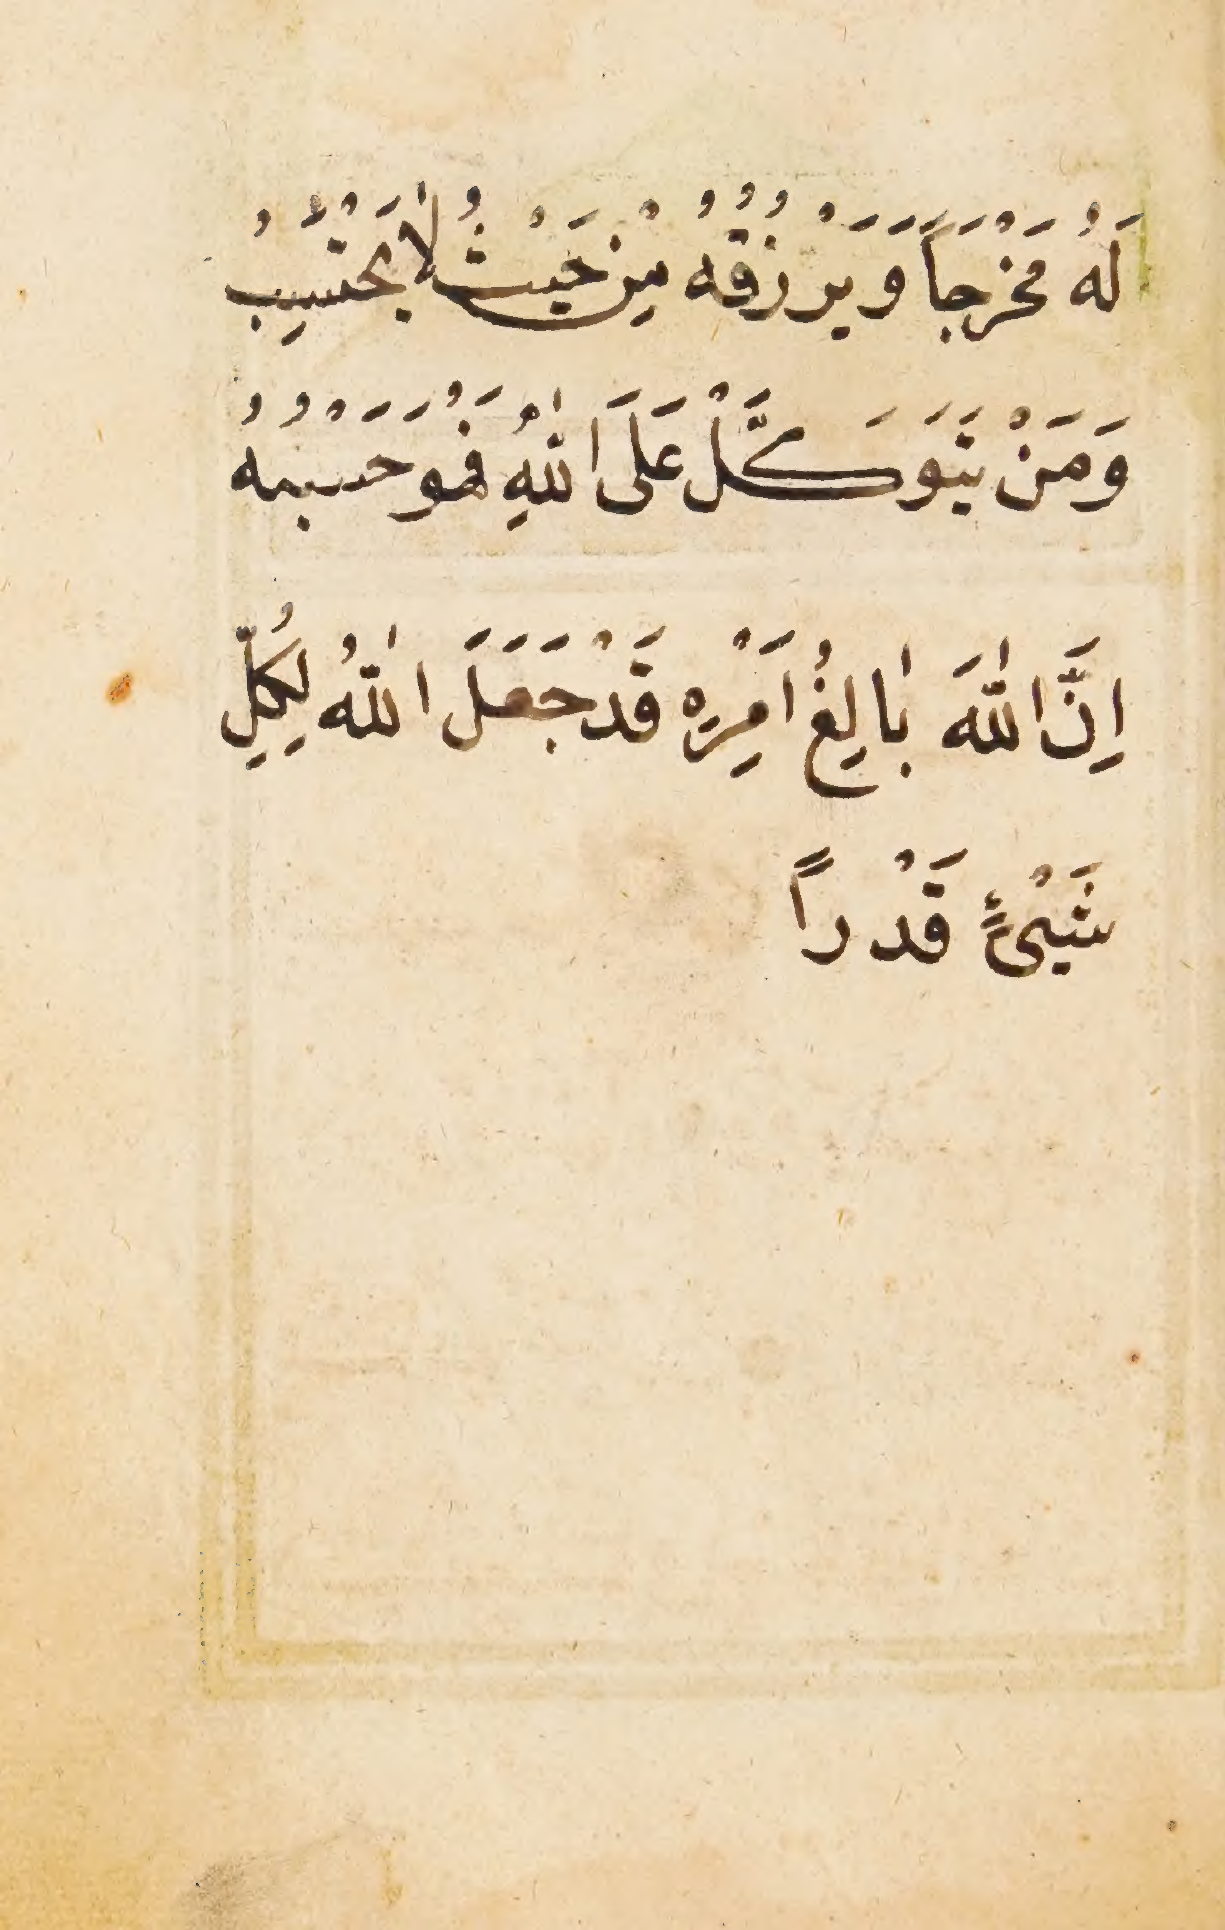 لَهُ مَخْرَجاً وَيَرْزُقُهُ مِنْ حَيْثُ لَا يَحْتَسِبُ
وَمَنْ يَتَوَكَّلْ عَلَى اللّٰهِ فَهُوَ حَسْبُهُ
اِنَّ اللّٰهَ بَالِغُ اَمْرِهِ قَدْ جَعَلَ اللّٰهُ لِكُلِّ
شَيْئٍ قَدْراً